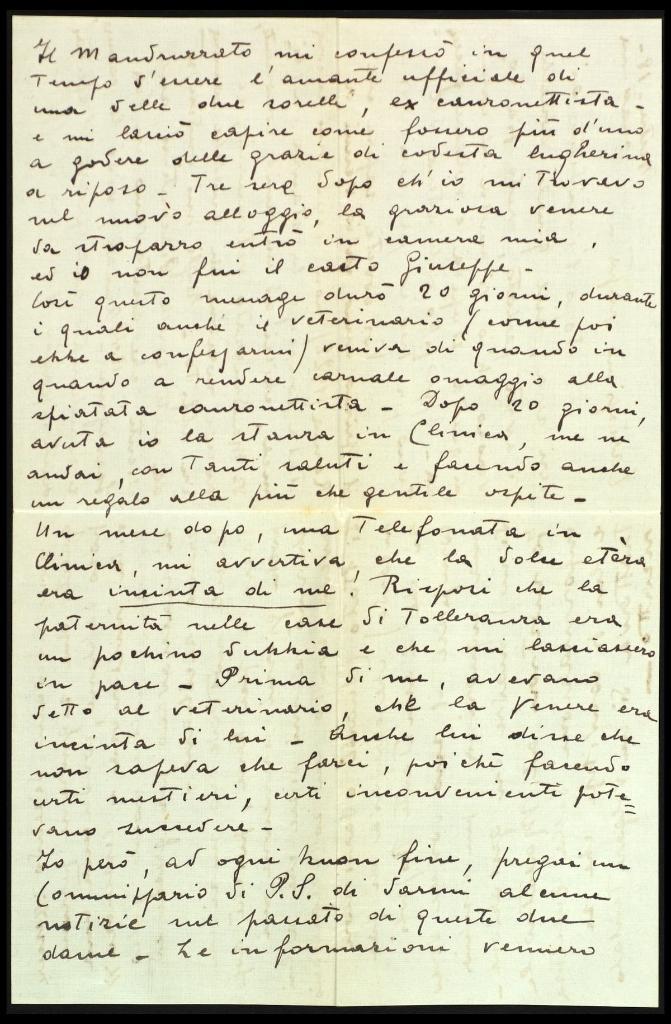 Il Mandruzzato mi confessò in quel
Tempo d'essere l'amante ufficiale di
una delle due sorelle, ex canzonettista -
e mi lasciò capire come fossero più d'uno
a godere delle grazie di codesta lugherina
a riposo - Tre sere dopo ch'io mi Trovavo
nel nuovo alloggio, la graziosa venere
da strapazzo entrò in camera mia,
ed io non fui il casto Giuseppe -
Così questo menage durò 20 giorni, durante
i quali anche il veterinario (come poi
ebbe a confessarmi) veniva di quando in
quando a rendere carnale omaggio alla
sfiatata canzonettista - Dopo 20 giorni,
avuta io la stanza in Clinica, me ne
andai, con Tanti saluti e facendo anche
un regalo alla più che gentile ospite -
Un mese dopo, una Telefonata in
Clinica, mi avvertiva, che la dolce etèra
era incinta di me! Risposi che la
paternità nelle case di Tolleranza era
un pochino dubbia e che mi lasciassero
in pace - Prima di me, avevano
detto al veterinario, che la Venere era
incinta di lui - Anche lui disse che
non sapeva che farci, poichè facendo
certi mestieri, certi inconvenienti pote=
vano succedere -
Io però, ad ogni buon fine, pregai un
Commissario di P.S. di darmi alcune
notizie sul passato di queste due
dame - Le informazioni vennero